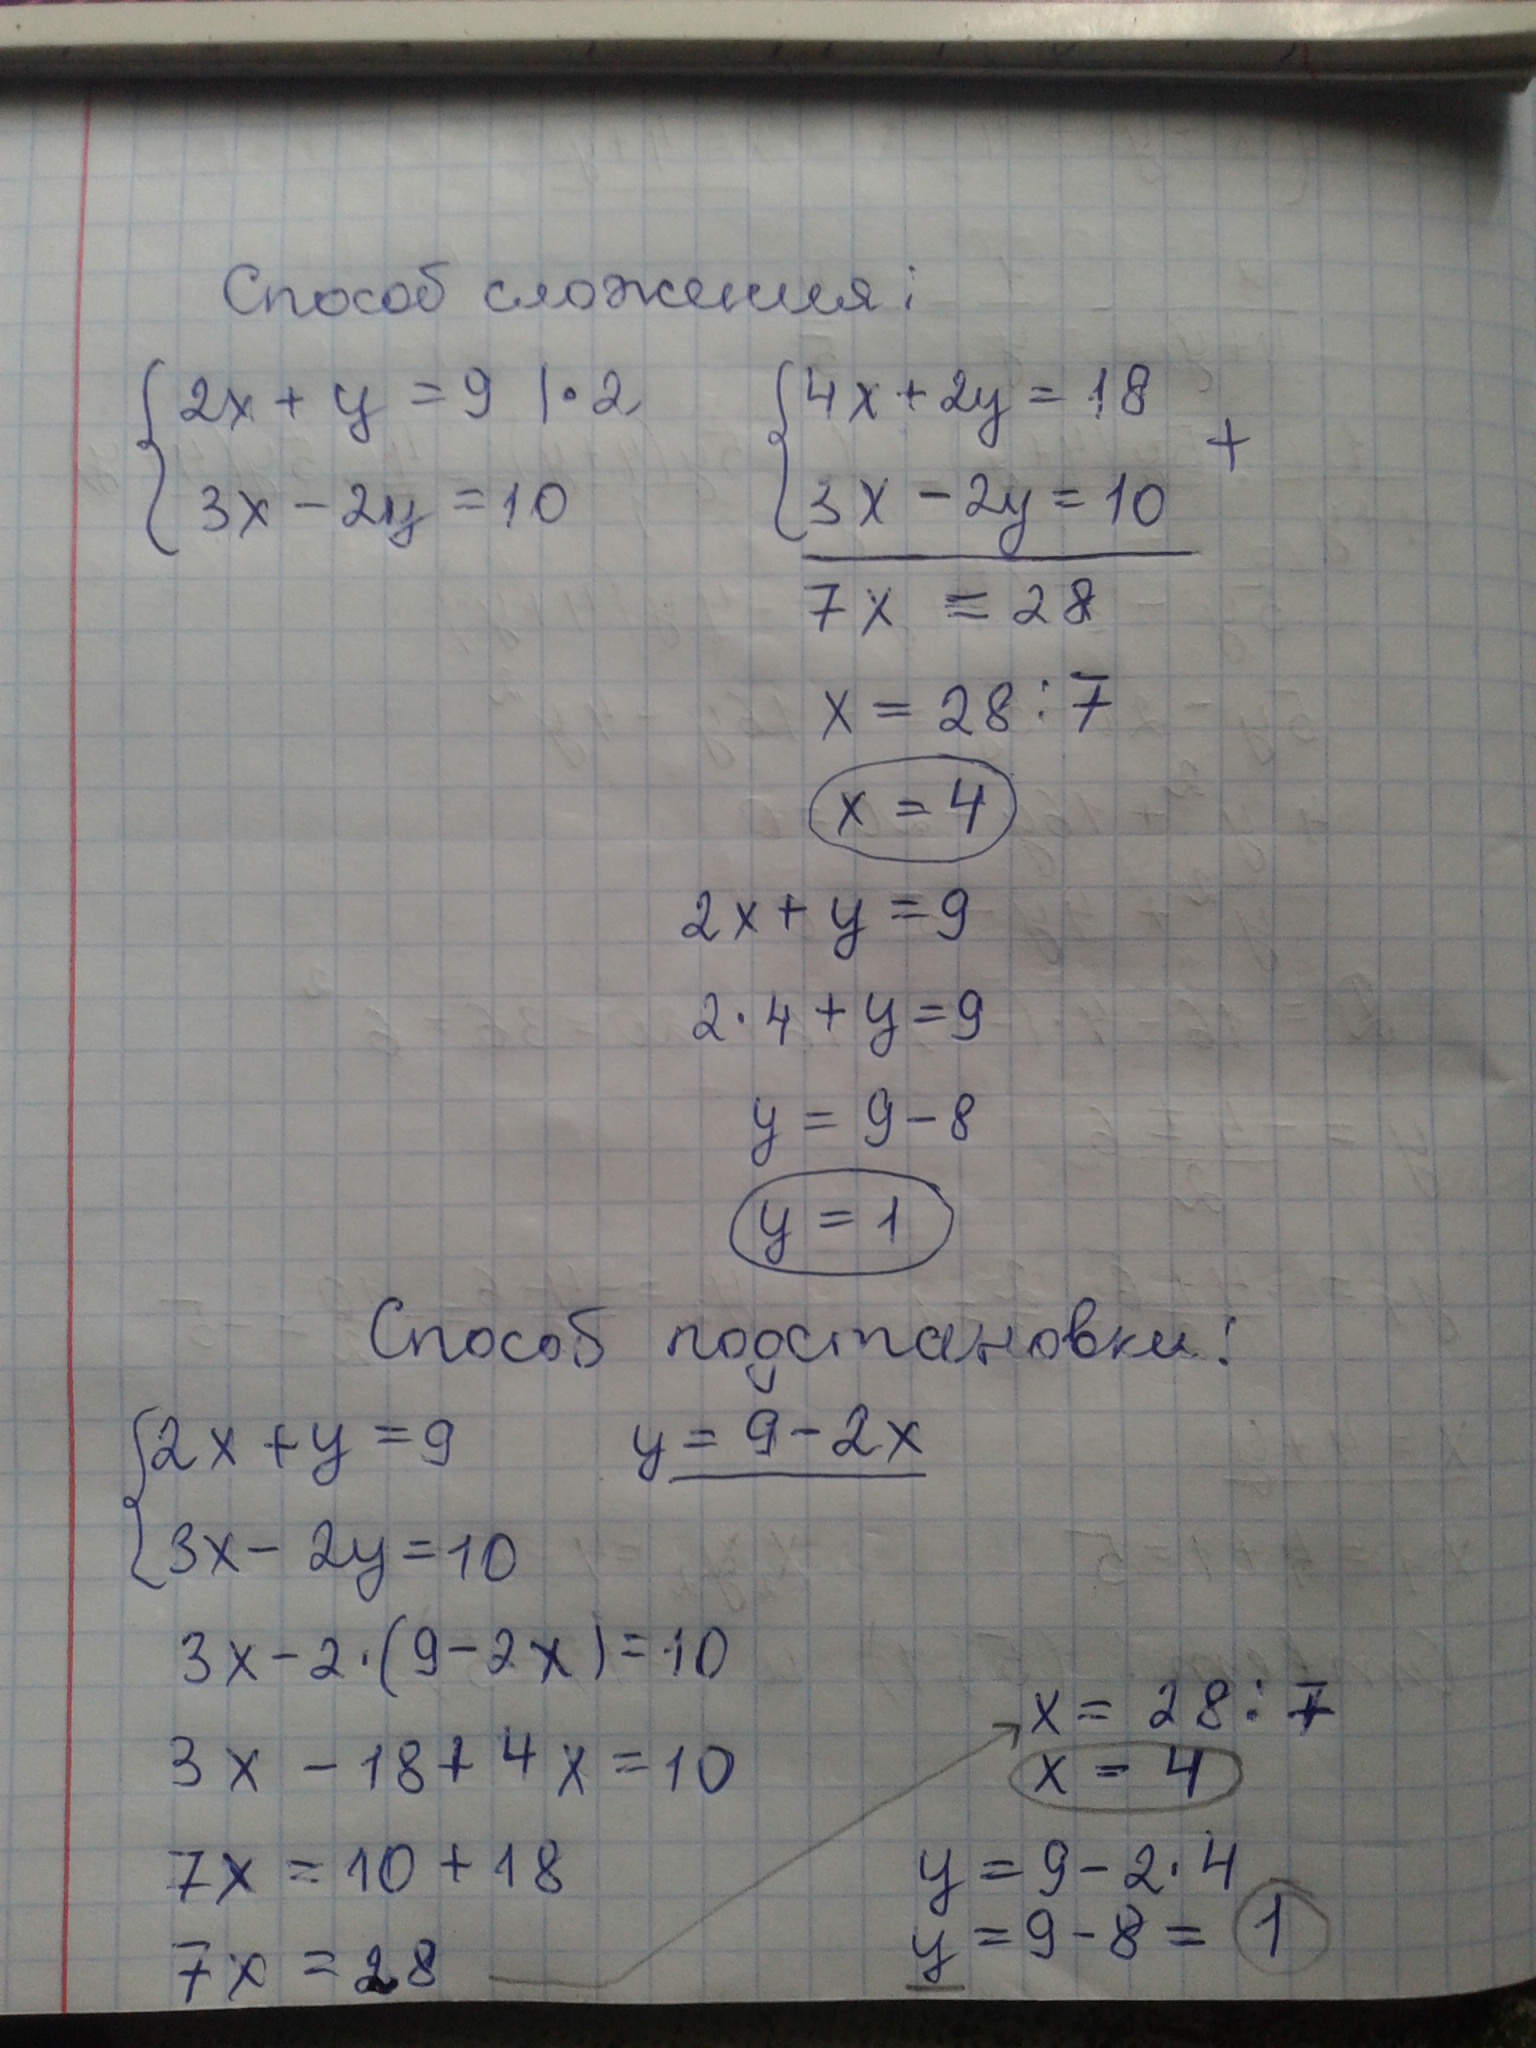 Способ сложения:
{2x + y = 9 |·2
3x - 2y = 10
{4x + 2y = 18
3x - 2y = 10
+
7x = 28
x = 28 : 7
x = 4
2x + y = 9
2·4 + y = 9
y = 9 - 8
y = 1
Способ подстановки:
{2x + y = 9
3x - 2y = 10
y = 9 - 2x
3x - 2·(9 - 2x) = 10
3x - 18 + 4x = 10
7x = 10 + 18
7x = 28
x = 28 : 7
x = 4
y = 9 - 2·4
y = 9 - 8 = 1